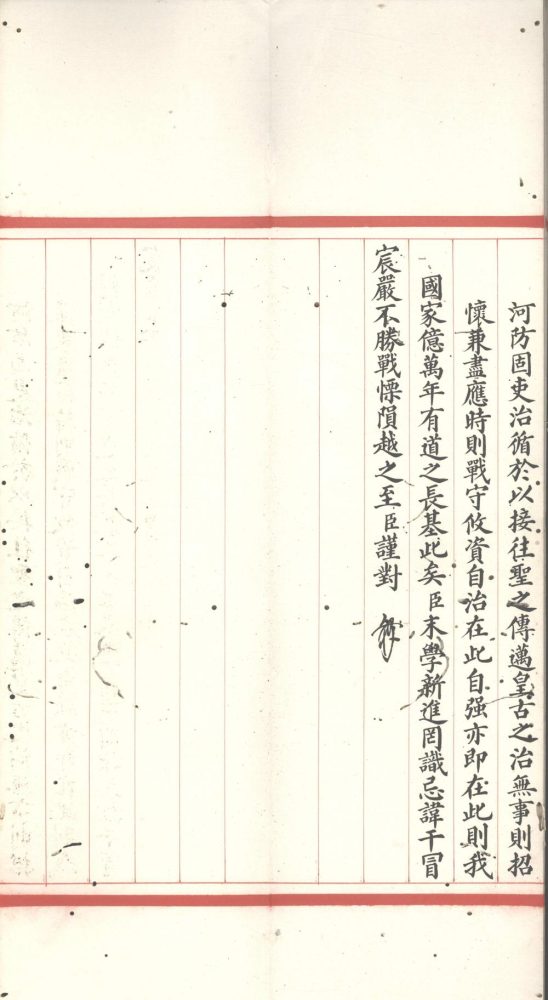 河防固吏治循於以接往聖之傳邁皇古之治無事則招
懷兼盡應時則戰守攸資自治在此自强亦即在此則我
國家億萬年有道之長基此矣臣末學新進罔識忌諱干冒
宸嚴不勝戰慄隕越之至臣謹對